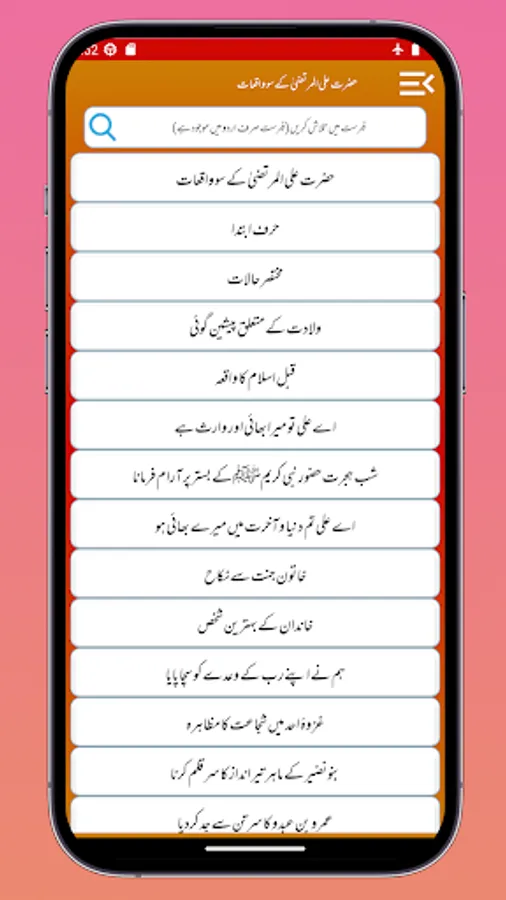 :32
حضرت علی المرتضیٰ کے سو واقعات
فہرست میں تلاش کریں (فہرست صرف اردو میں موجود ہے)
حضرت علی المرتضیٰ کے سو واقعات
حرف ابتدا
مختصر حالات
ولادت کے متعلق پیشین گوئی
قبل اسلام کا واقعہ
اے علی تو میرا بھائی اور وارث ہے
شب ہجرت حضور نبی کریم ﷺ کے بستر پر آرام فرمانا
اے علی تم دنیا و آخرت میں میرے بھائی ہو
خاتون جنت سے نکاح
خاندان کے بہترین شخص
ہم نے اپنے رب کے وعدے کو سچا پایا
غزوۂ احد میں شجاعت کا مظاہرہ
بنو نضیر کے ماہر تیر انداز کا سر قلم کرنا
عمرو بن عبدو کا سر تن سے جدا کر دیا